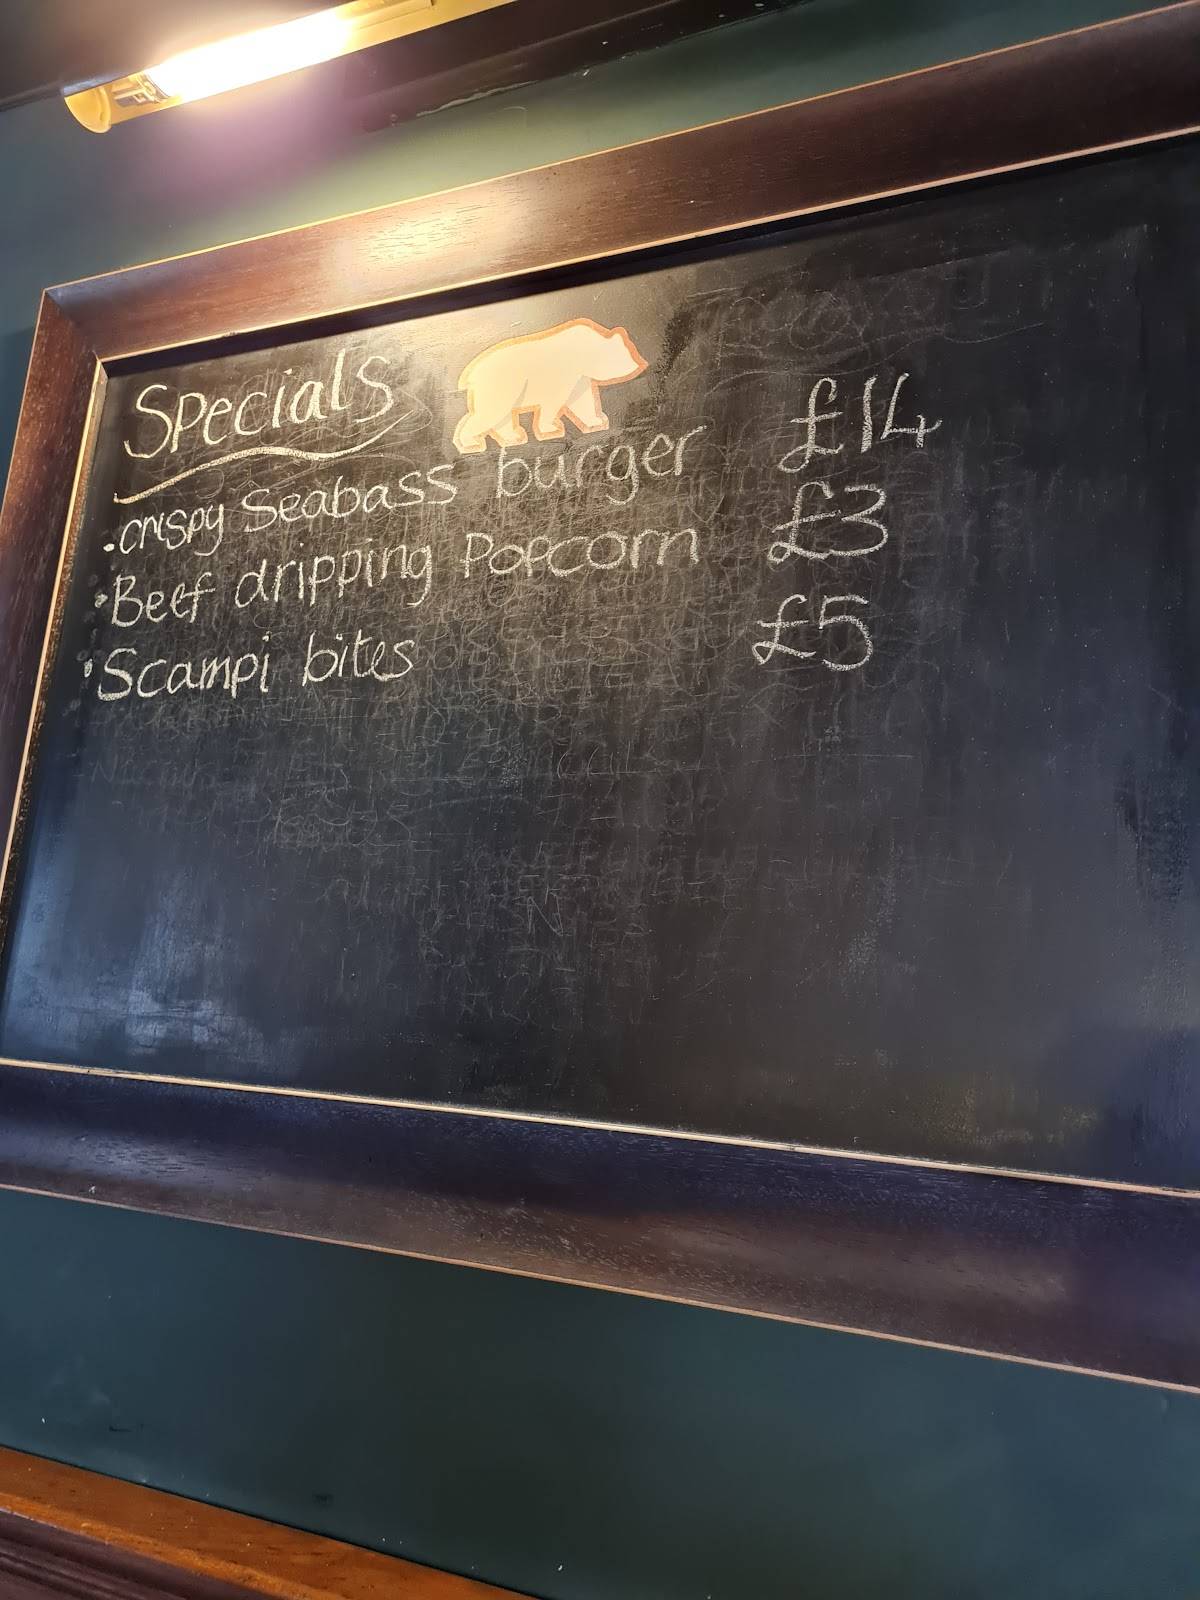 Specials
• crispy Seabass burger £14
• Beef dripping Popcorn £3
• Scampi bites £5